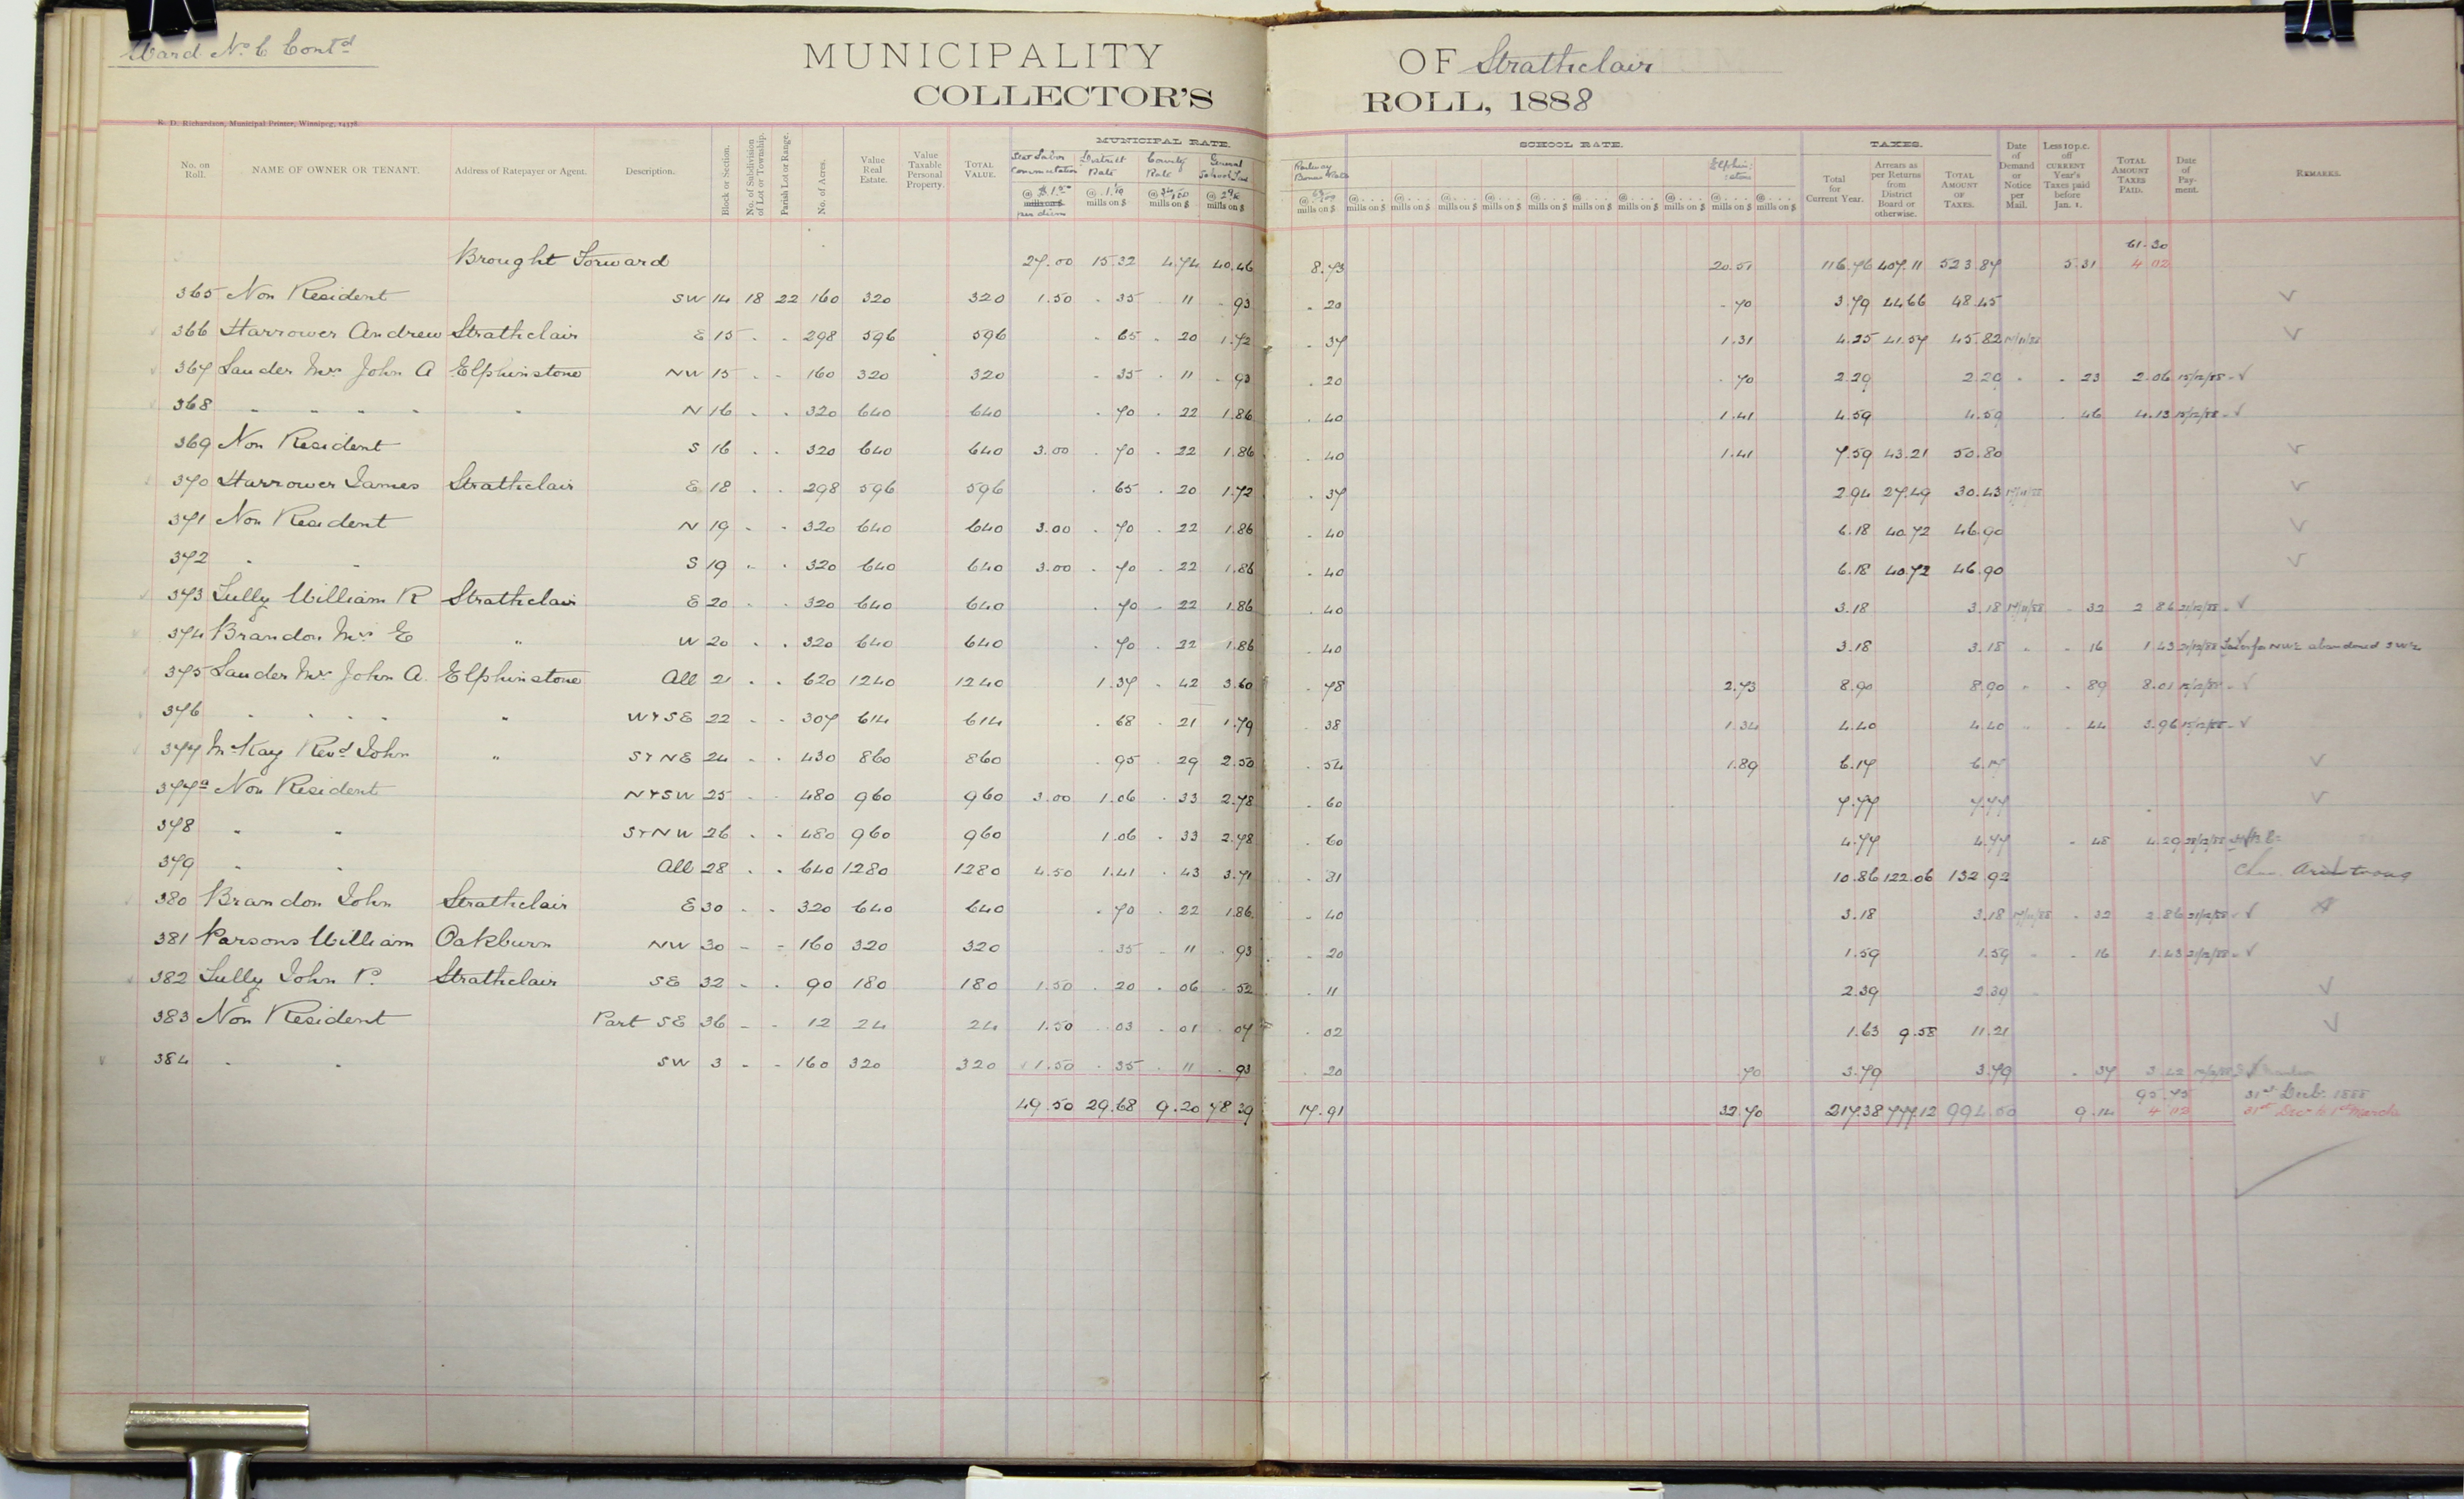 Ward No 6 Contd
MUNICIPALITY OF Strathclair
COLLECTOR'S ROLL, 1888
R. D. Richardson, Municipal Printer, Winnipeg,
No. on Roll. NAME OF OWNER OR TENANT. Address of Ratepayer or Agent. Description. Block or Section. No. of Subdivision of Lot or Township. Parish Lot or Range. No. of Acres. Value Real Estate. Value Taxable Personal Property. TOTAL VALUE. MUNICIPAL RATE. Stat Labor Commutation @ $1.50 mills on $ per diem District Rate @ 1.10 mills on $ County Rate @ 34/100 mills on $ General School Tax @ mills on $ Railway Bonus Rate @ mills on $ SCHOOL RATE. Elphinstone @ mills on $ TAXES. Total for Current Year. Arrears as per Returns from District Board or otherwise. TOTAL AMOUNT OF TAXES. Date of Demand or Notice per Mail. Less 10 p.c. off CURRENT Year's Taxes paid before Jan. 1. TOTAL AMOUNT TAXES PAID. Date of Payment. REMARKS.
61.30
Brought Forward 27.00 15.32 4.74 40.46 8.73 20.51 116.76 407.11 523.87 5.31 4.02
365 Non Resident SW 14 18 22 160 320 320 1.50 . 35 11 . 93 . 20 . 70 3.79 44.66 48.45
366 Harrower Andrew Strathclair E 15 . . 298 596 596 . 65 . 20 1.72 . 37 1.31 4.25 41.57 45.82 17/11/88
367 Lauder Mrs John A Elphinstone NW 15 . . 160 320 320 . 35 . 11 . 93 . 20 . 70 2.29 2.29 . . 23 2.06 15/12/88
368 " " " " " N 16 . . 320 640 640 . 70 . 22 1.86 . 40 1.41 4.59 4.59 . 46 4.13 15/12/88
369 Non Resident S 16 . . 320 640 640 3.00 . 70 . 22 1.86 . 40 1.41 7.59 43.21 50.80
370 Harrower James Strathclair E 18 . . 298 596 596 . 65 . 20 1.72 . 37 2.94 27.49 30.43 17/11/88
371 Non Resident N 19 . . 320 640 640 3.00 . 70 . 22 1.86 . 40 6.18 40.72 46.90
372 " " S 19 . . 320 640 640 3.00 . 70 . 22 1.86 . 40 6.18 40.72 46.90
373 Lully William R Strathclair E 20 . . 320 640 640 . 70 . 22 1.86 . 40 3.18 3.18 17/11/88 . 32 2.86 21/12/88
374 Brandon Mrs E " W 20 . . 320 640 640 . 70 . 22 1.86 . 40 3.18 3.18 . . 16 1.43 NW¼ abandoned SW¼
375 Lauder Mrs John A. Elphinstone All 21 . . 620 1240 1240 1.37 . 42 3.60 . 78 2.73 8.90 8.90 . . 89 8.01 15/12/88
376 " " " " " W & SE 22 . . 307 614 614 . 68 . 21 1.79 . 38 1.34 4.40 4.40 . . 44 3.96 15/12/88
377 McKay Revd John " S & NE 24 . . 430 860 860 . 95 . 29 2.50 . 54 1.89 6.17 6.17
377a Non Resident N & SW 25 . . 480 960 960 3.00 1.06 . 33 2.78 . 60 7.77 7.77
378 " " S & NW 26 . . 480 960 960 1.06 . 33 2.78 . 60 4.77 4.77 . 48 4.29
379 " " All 28 . . 640 1280 1280 4.50 1.41 . 43 3.71 . 81 10.86 122.06 132.92 Armstrong
380 Brandon John Strathclair E 30 . . 320 640 640 . 70 . 22 1.86 . 40 3.18 3.18 17/11/88 . 32 2.86 21/12/88
381 Parsons William Oakburn NW 30 - - 160 320 320 . 35 . 11 . 93 . 20 1.59 1.59 . 16 1.43 21/12/88
382 Lully John P. Strathclair SE 32 - . 90 180 180 1.50 . 20 . 06 . 52 . 11 2.39 2.39
383 Non Resident Part SE 36 - - 12 24 24 1.50 . 03 . 01 . 07 . 02 1.63 9.58 11.21
384 " " SW 3 - - 160 320 320 1.50 . 35 . 11 . 93 . 20 . 70 3.79 3.79 . 37 3.42
95.75 31st Decb. 1888
49.50 29.68 9.20 78.39 17.91 32.70 217.38 777.12 994.50 9.14 4.02 31st Dec to 1st March